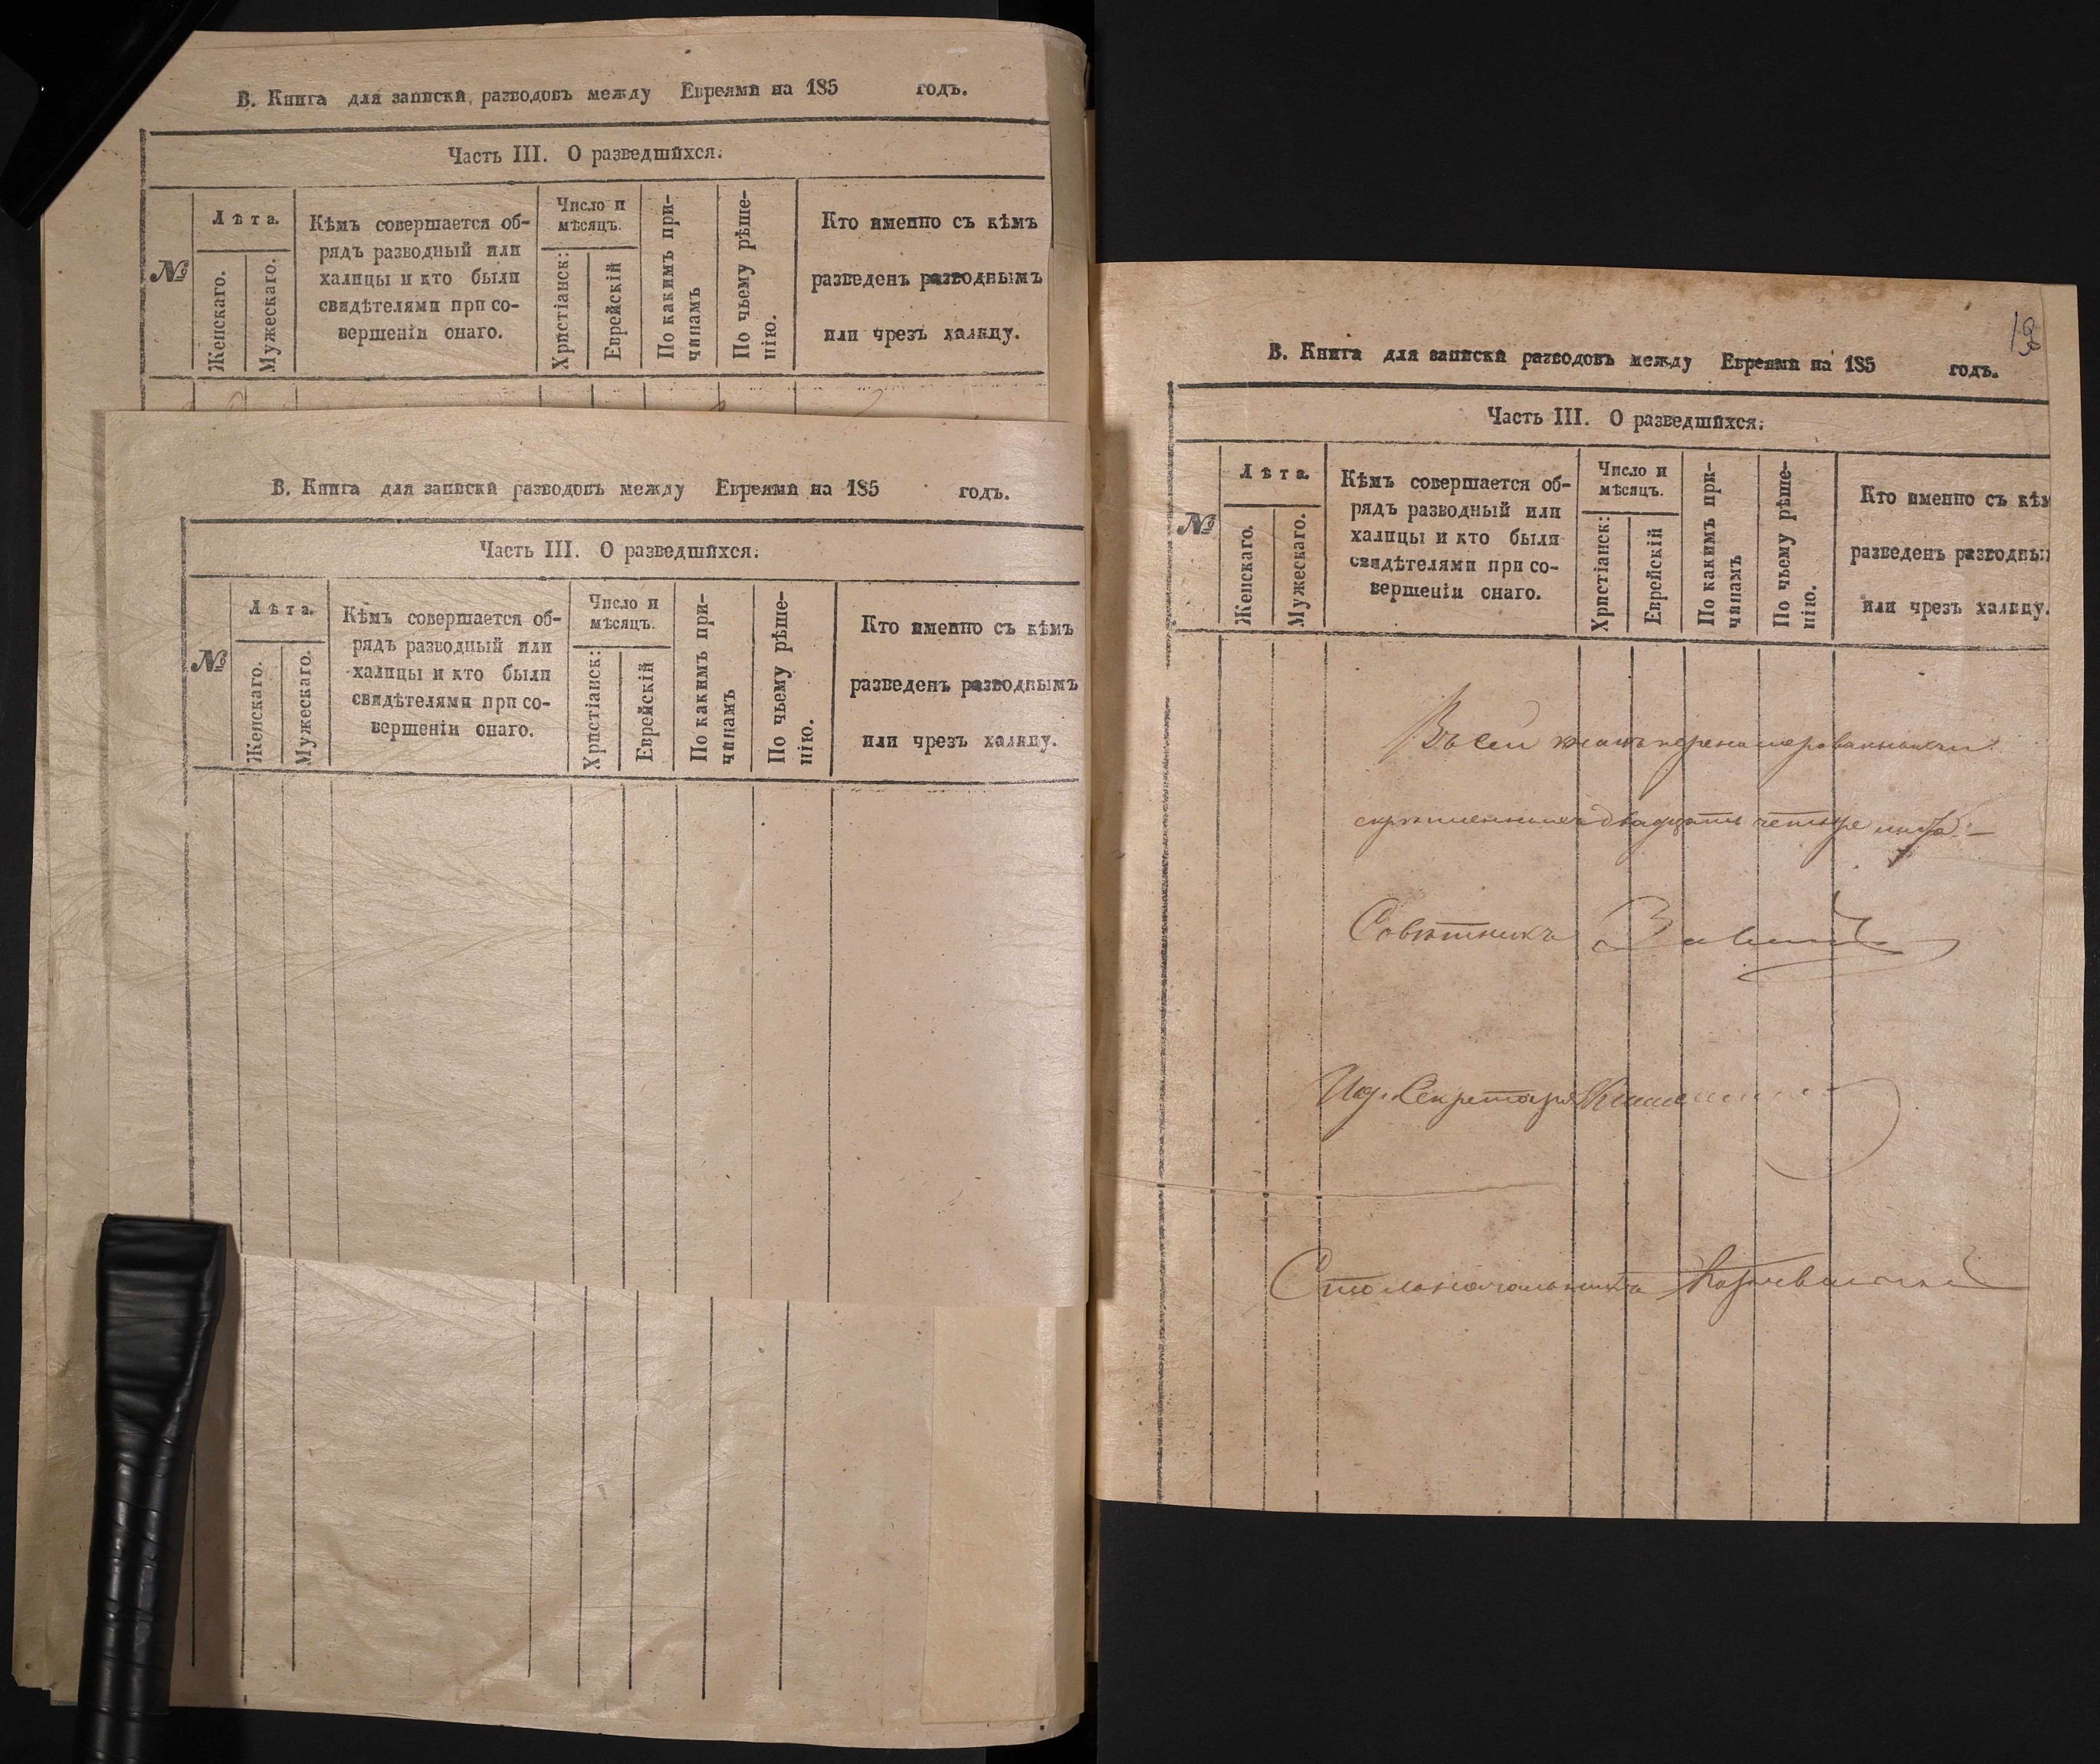 В. Книга для записки разводовъ между Евреями на 185 годъ.
Часть III. О разведшихся.
№
Лѣта.
Женскаго.
Мужескаго.
Кѣмъ совершается об-
рядъ разводный или
халицы и кто были
свидѣтелями при со-
вершеніи онаго.
Число и
мѣсяцъ.
Христіанск:
Еврейскій
По какимъ при-
чинамъ
По чьему рѣше-
нію.
Кто именно съ кѣмъ
разведенъ разводнымъ
или чрезъ халицу.
В. Книга для записки разводовъ между Евреями на 185 годъ.
Часть III. О разведшихся.
№
Лѣта.
Женскаго.
Мужескаго.
Кѣмъ совершается об-
рядъ разводный или
халицы и кто были
свидѣтелями при со-
вершеніи онаго.
Число и
мѣсяцъ.
Христіанск:
Еврейскій
По какимъ при-
чинамъ
По чьему рѣше-
нію.
Кто именно съ кѣмъ
разведенъ разводнымъ
или чрезъ халицу.
В. Книга для записки разводовъ между Евреями на 185 годъ.
Часть III. О разведшихся.
№
Лѣта.
Женскаго.
Мужескаго.
Кѣмъ совершается об-
рядъ разводный или
халицы и кто были
свидѣтелями при со-
вершеніи онаго.
Число и
мѣсяцъ.
Христіанск:
Еврейскій
По какимъ при-
чинамъ
По чьему рѣше-
нію.
Кто именно съ кѣм
разведенъ разводны
или чрезъ халицу.
Въ сей
двадцать четыре листа
Совѣтникъ
Секретаря
Столоначальникъ